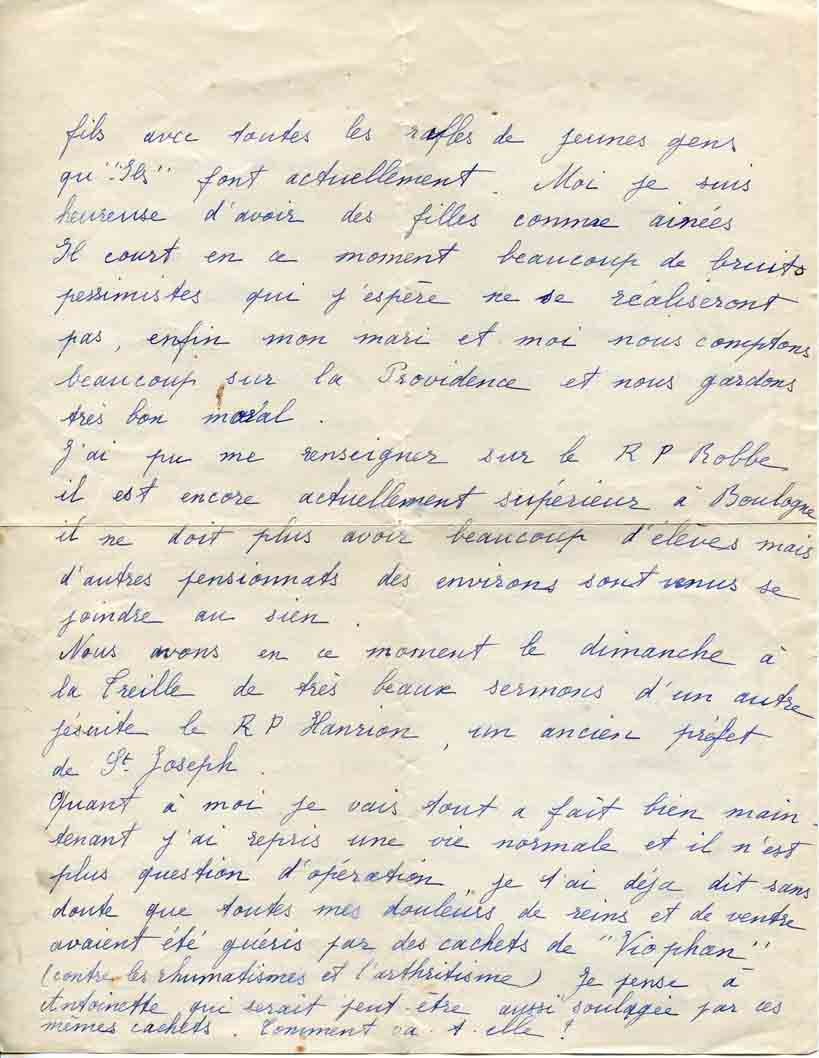 fils avec toutes les rafles de jeunes gens
qu'"Ils" font actuellement. Moi je suis
heureuse d'avoir des filles comme ainées
Il court en ce moment beaucoup de bruits
pessimistes qui j'espère ne se réaliseront
pas, enfin mon mari et moi nous comptons
beaucoup sur la Providence et nous gardons
très bon moral.
J'ai pu me renseigner sur le R P Robbe
il est encore actuellement supérieur à Boulogne
il ne doit plus avoir beaucoup d'élèves mais
d'autres pensionnats des environs sont venus se
joindre au sien.
Nous avons en ce moment le dimanche à
la Treille de très beaux sermons d'un autre
jésuite le R P Hanrion, un ancien préfet
de St Joseph.
Quant à moi je vais tout a fait bien main-
tenant j'ai repris une vie normale et il n'est
plus question d'opération, je t'ai déja dit sans
doute que toutes mes douleurs de reins et de ventre
avaient été guéris par des cachets de "Viophan"
(contre les rhumatismes et l'arthritisme) Je pense à
Antoinette qui serait peut-être aussi soulagée par ces
mêmes cachets. Comment va-t-elle?